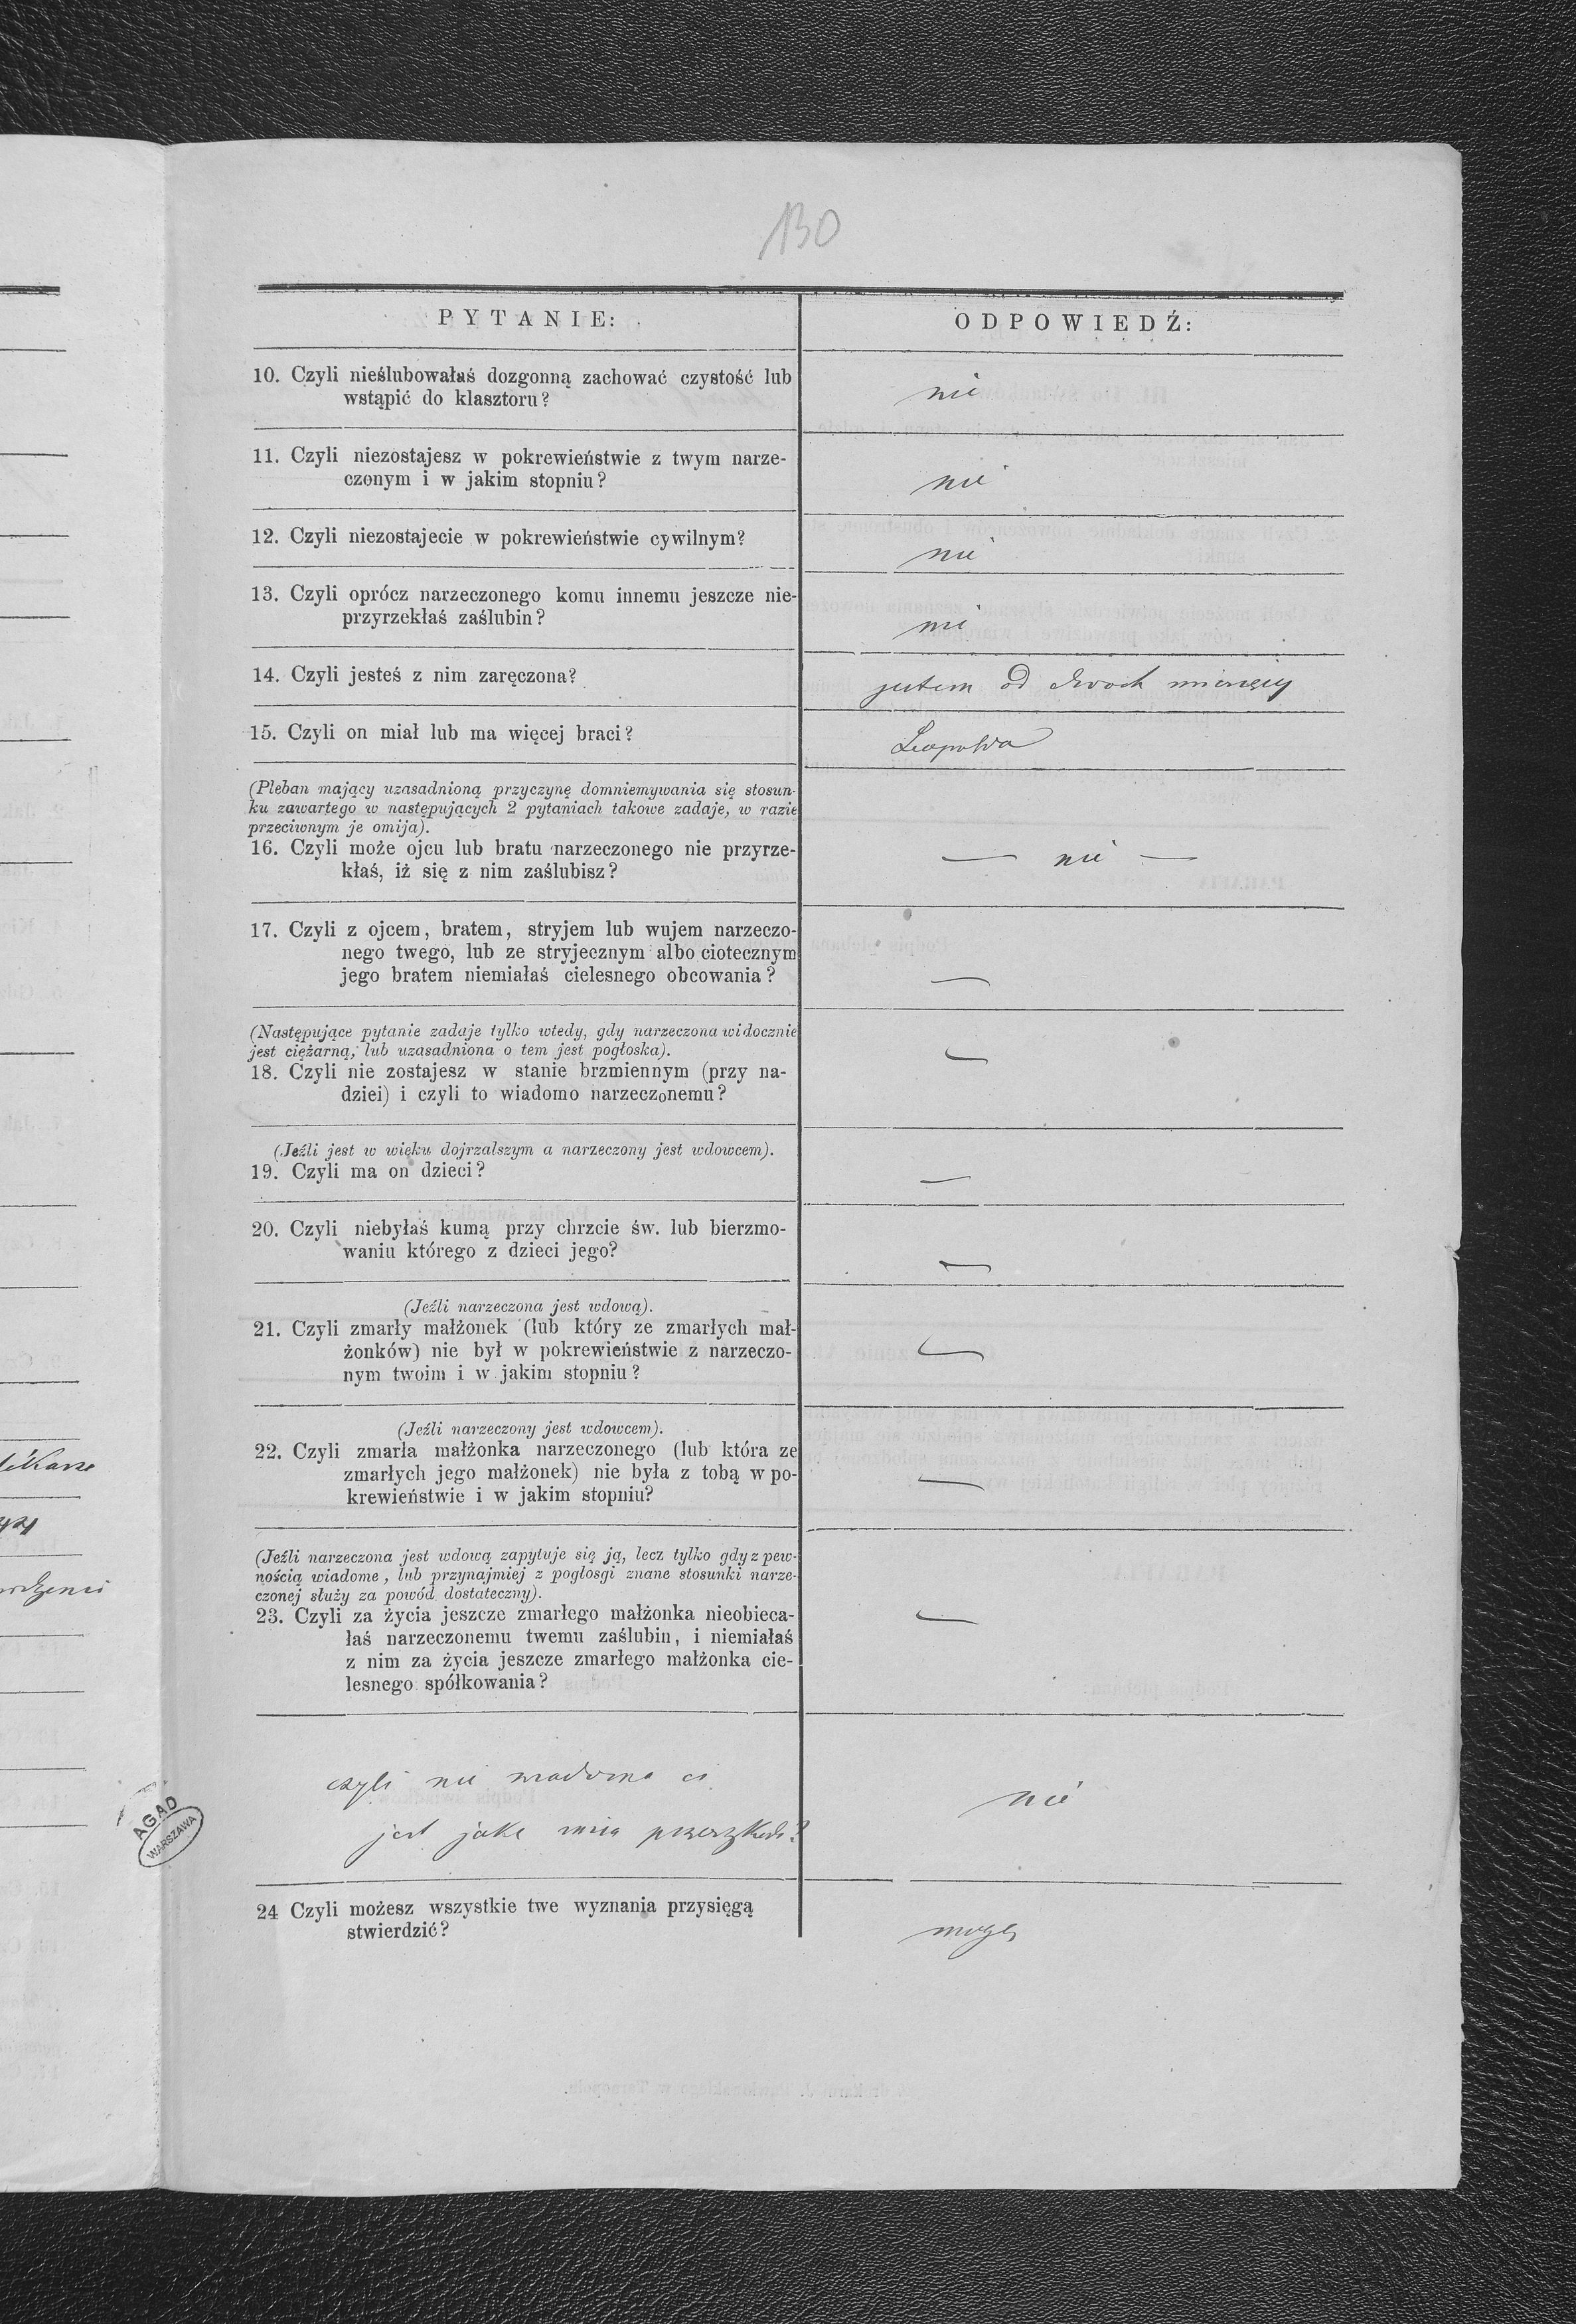 130
PYTANIE:
ODPOWIEDŹ:
10. Czyli nieślubowałaś dozgonną zachować czystość lub
wstąpić do klasztoru?
nie
11. Czyli niezostajesz w pokrewieństwie z twym narze-
czonym i w jakim stopniu?
nie
12. Czyli niezostajecie w pokrewieństwie cywilnym?
nie
13. Czyli oprócz narzeczonego komu innemu jeszcze nie-
przyrzekłaś zaślubin?
nie
14. Czyli jesteś z nim zaręczona?
jestem od dwoch miesięcy
15. Czyli on miał lub ma więcej braci?
Leopolda
(Pleban mający uzasadnioną przyczynę domniemywania się stosun-
ku zawartego w następujących 2 pytaniach takowe zadaje, w razie
przeciwnym je omija).
16. Czyli może ojcu lub bratu narzeczonego nie przyrze-
kłaś, iż się z nim zaślubisz?
— nie —
17. Czyli z ojcem, bratem, stryjem lub wujem narzeczo-
nego twego, lub ze stryjecznym albo ciotecznym
jego bratem niemiałaś cielesnego obcowania?
—
(Następujące pytanie zadaje tylko wtedy, gdy narzeczona widocznie
jest ciężarną, lub uzasadniona o tem jest pogłoska).
18. Czyli nie zostajesz w stanie brzmiennym (przy na-
dziei) i czyli to wiadomo narzeczonemu?
—
(Jeźli jest w wieku dojrzalszym a narzeczony jest wdowcem).
19. Czyli ma on dzieci?
—
20. Czyli niebyłaś kumą przy chrzcie św. lub bierzmo-
waniu którego z dzieci jego?
—
(Jeźli narzeczona jest wdową).
21. Czyli zmarły małżonek (lub który ze zmarłych mał-
żonków) nie był w pokrewieństwie z narzeczo-
nym twoim i w jakim stopniu?
—
(Jeźli narzeczony jest wdowcem).
22. Czyli zmarła małżonka narzeczonego (lub która ze
zmarłych jego małżonek) nie była z tobą w po-
krewieństwie i w jakim stopniu?
—
(Jeźli narzeczona jest wdową zapytuje się ją, lecz tylko gdy z pew-
nością wiadome, lub przynajmiej z pogłosgi znane stosunki narze-
czonej służy za powód dostateczny).
23. Czyli za życia jeszcze zmarłego małżonka nieobieca-
łaś narzeczonemu twemu zaślubin, i niemiałaś
z nim za życia jeszcze zmarłego małżonka cie-
lesnego spółkowania?
—
czyli nie wiadoma ci
jest jaka inna przeszkoda?
nie
24 Czyli możesz wszystkie twe wyznania przysięgą
stwierdzić?
mogę
AGAD
WARSZAWA